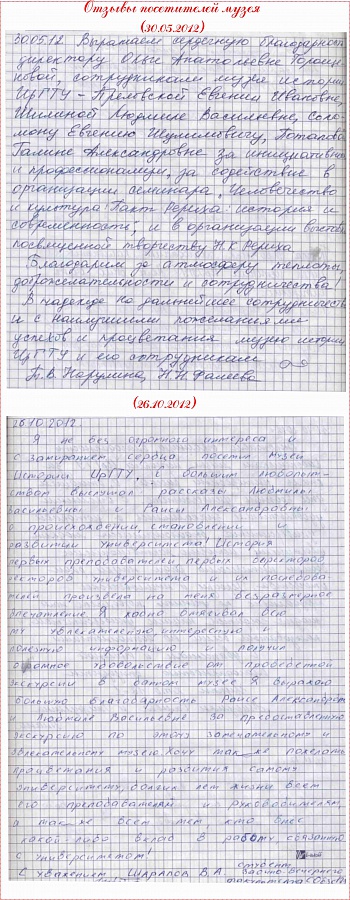 Отзывы посетителей музея
(30.05.2012)
30.05.12 Выражаем сердечную благодарность
директору Ольге Анатольевне
сотрудникам музея истории
ИрГТУ - Евгении Ивановне,
Шиминой Людмиле Васильевне, Соло-
мону Евгению Потаповой
Галине Александровне за
и профессионализм, за содействие в
организации семинара „Человечество
и культура: Пакт Рериха: история и
современность", и в организации выставки,
посвященной творчеству Н.К. Рериха.
Благодарим за атмосферу теплоты,
доброжелательности и сотрудничества!
В надежде на дальнейшее сотрудничество
и с наилучшими пожеланиями
успехов и процветания музею истории
ИрГТУ и его сотрудникам
(26.10.2012)
26.10.2012
Я не без огромного интереса и
с замиранием сердца посетил музей
Истории ИрГТУ, с большим любопыт-
ством выслушал рассказы Людмилы
Васильевны и Раисы Александровны
о происхождении, становлении и
развитии университета! История
первых преподавателей, первых директоров
ректоров университета и их последова-
телей произвела на меня безразмерное
впечатление. Я жадно впитывал всю
ту увлекательную, интересную и
полезную информацию, и получил
огромное удовольствие от проведенной
экскурсии в данном музее. Я выражаю
большую благодарность Раисе Александровне
и Людмиле Васильевне за предоставленную
экскурсию по этому замечательному и
увлекательному музею. Хочу так же пожелать
процветания и развития самому
университету, долгих лет жизни всем
его преподавателям и руководителям,
а так же всем тем кто внес
какой либо вклад в работу, связанную
с университетом!
С Уважением В.А. студент
Заочно-Вечернего
факультета